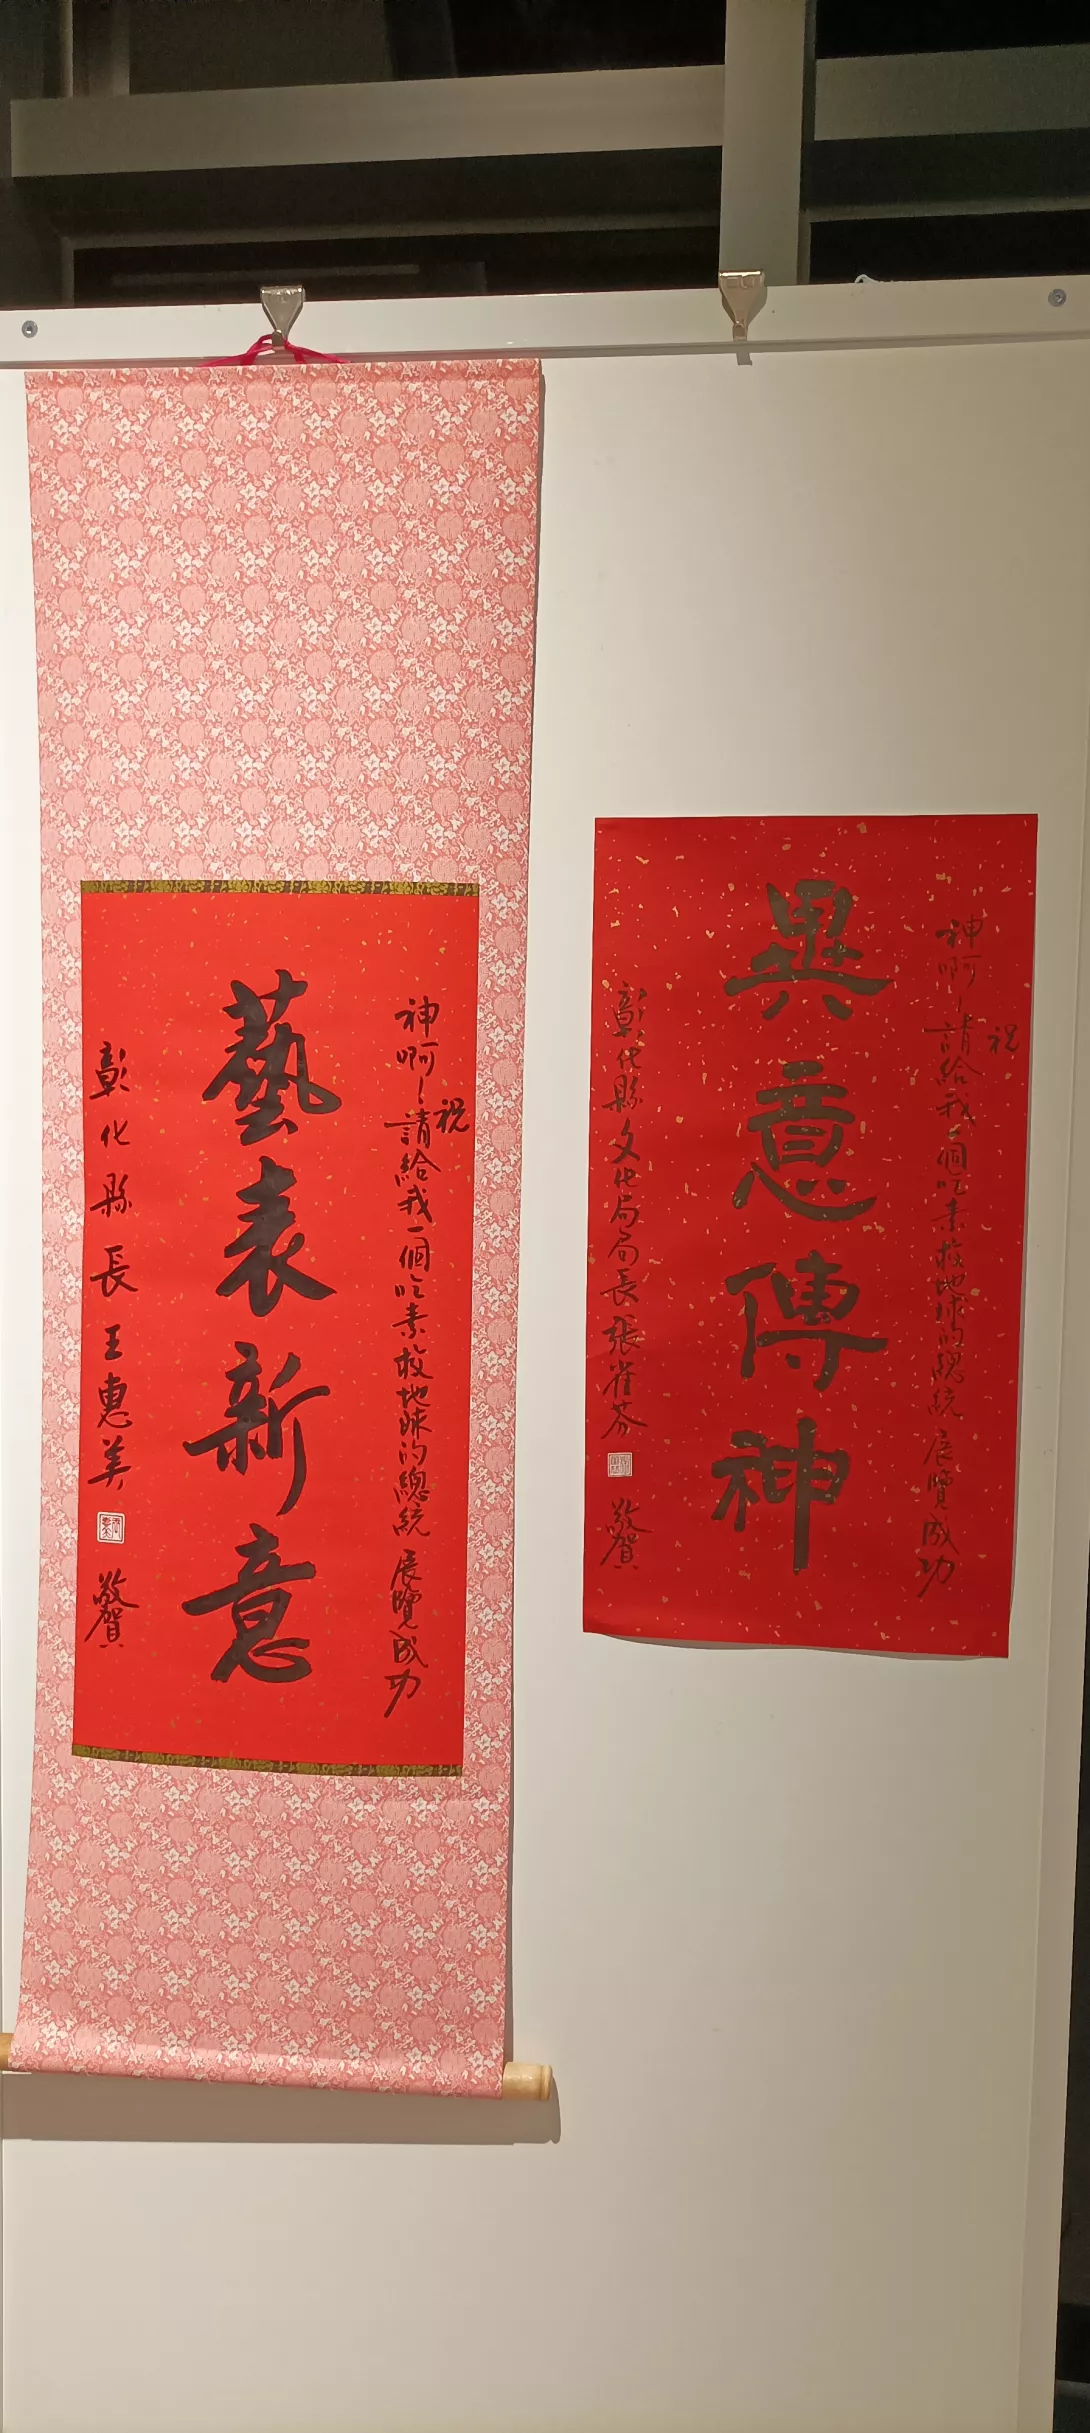 祝
神啊～請給我一個吃素救地球的總統 展覽成功
藝表新意
彰化縣長 王惠美 敬賀
祝
神啊～請給我一個吃素救地球的總統 展覽成功
異意傳神
彰化縣文化局局長張雀芬 敬賀